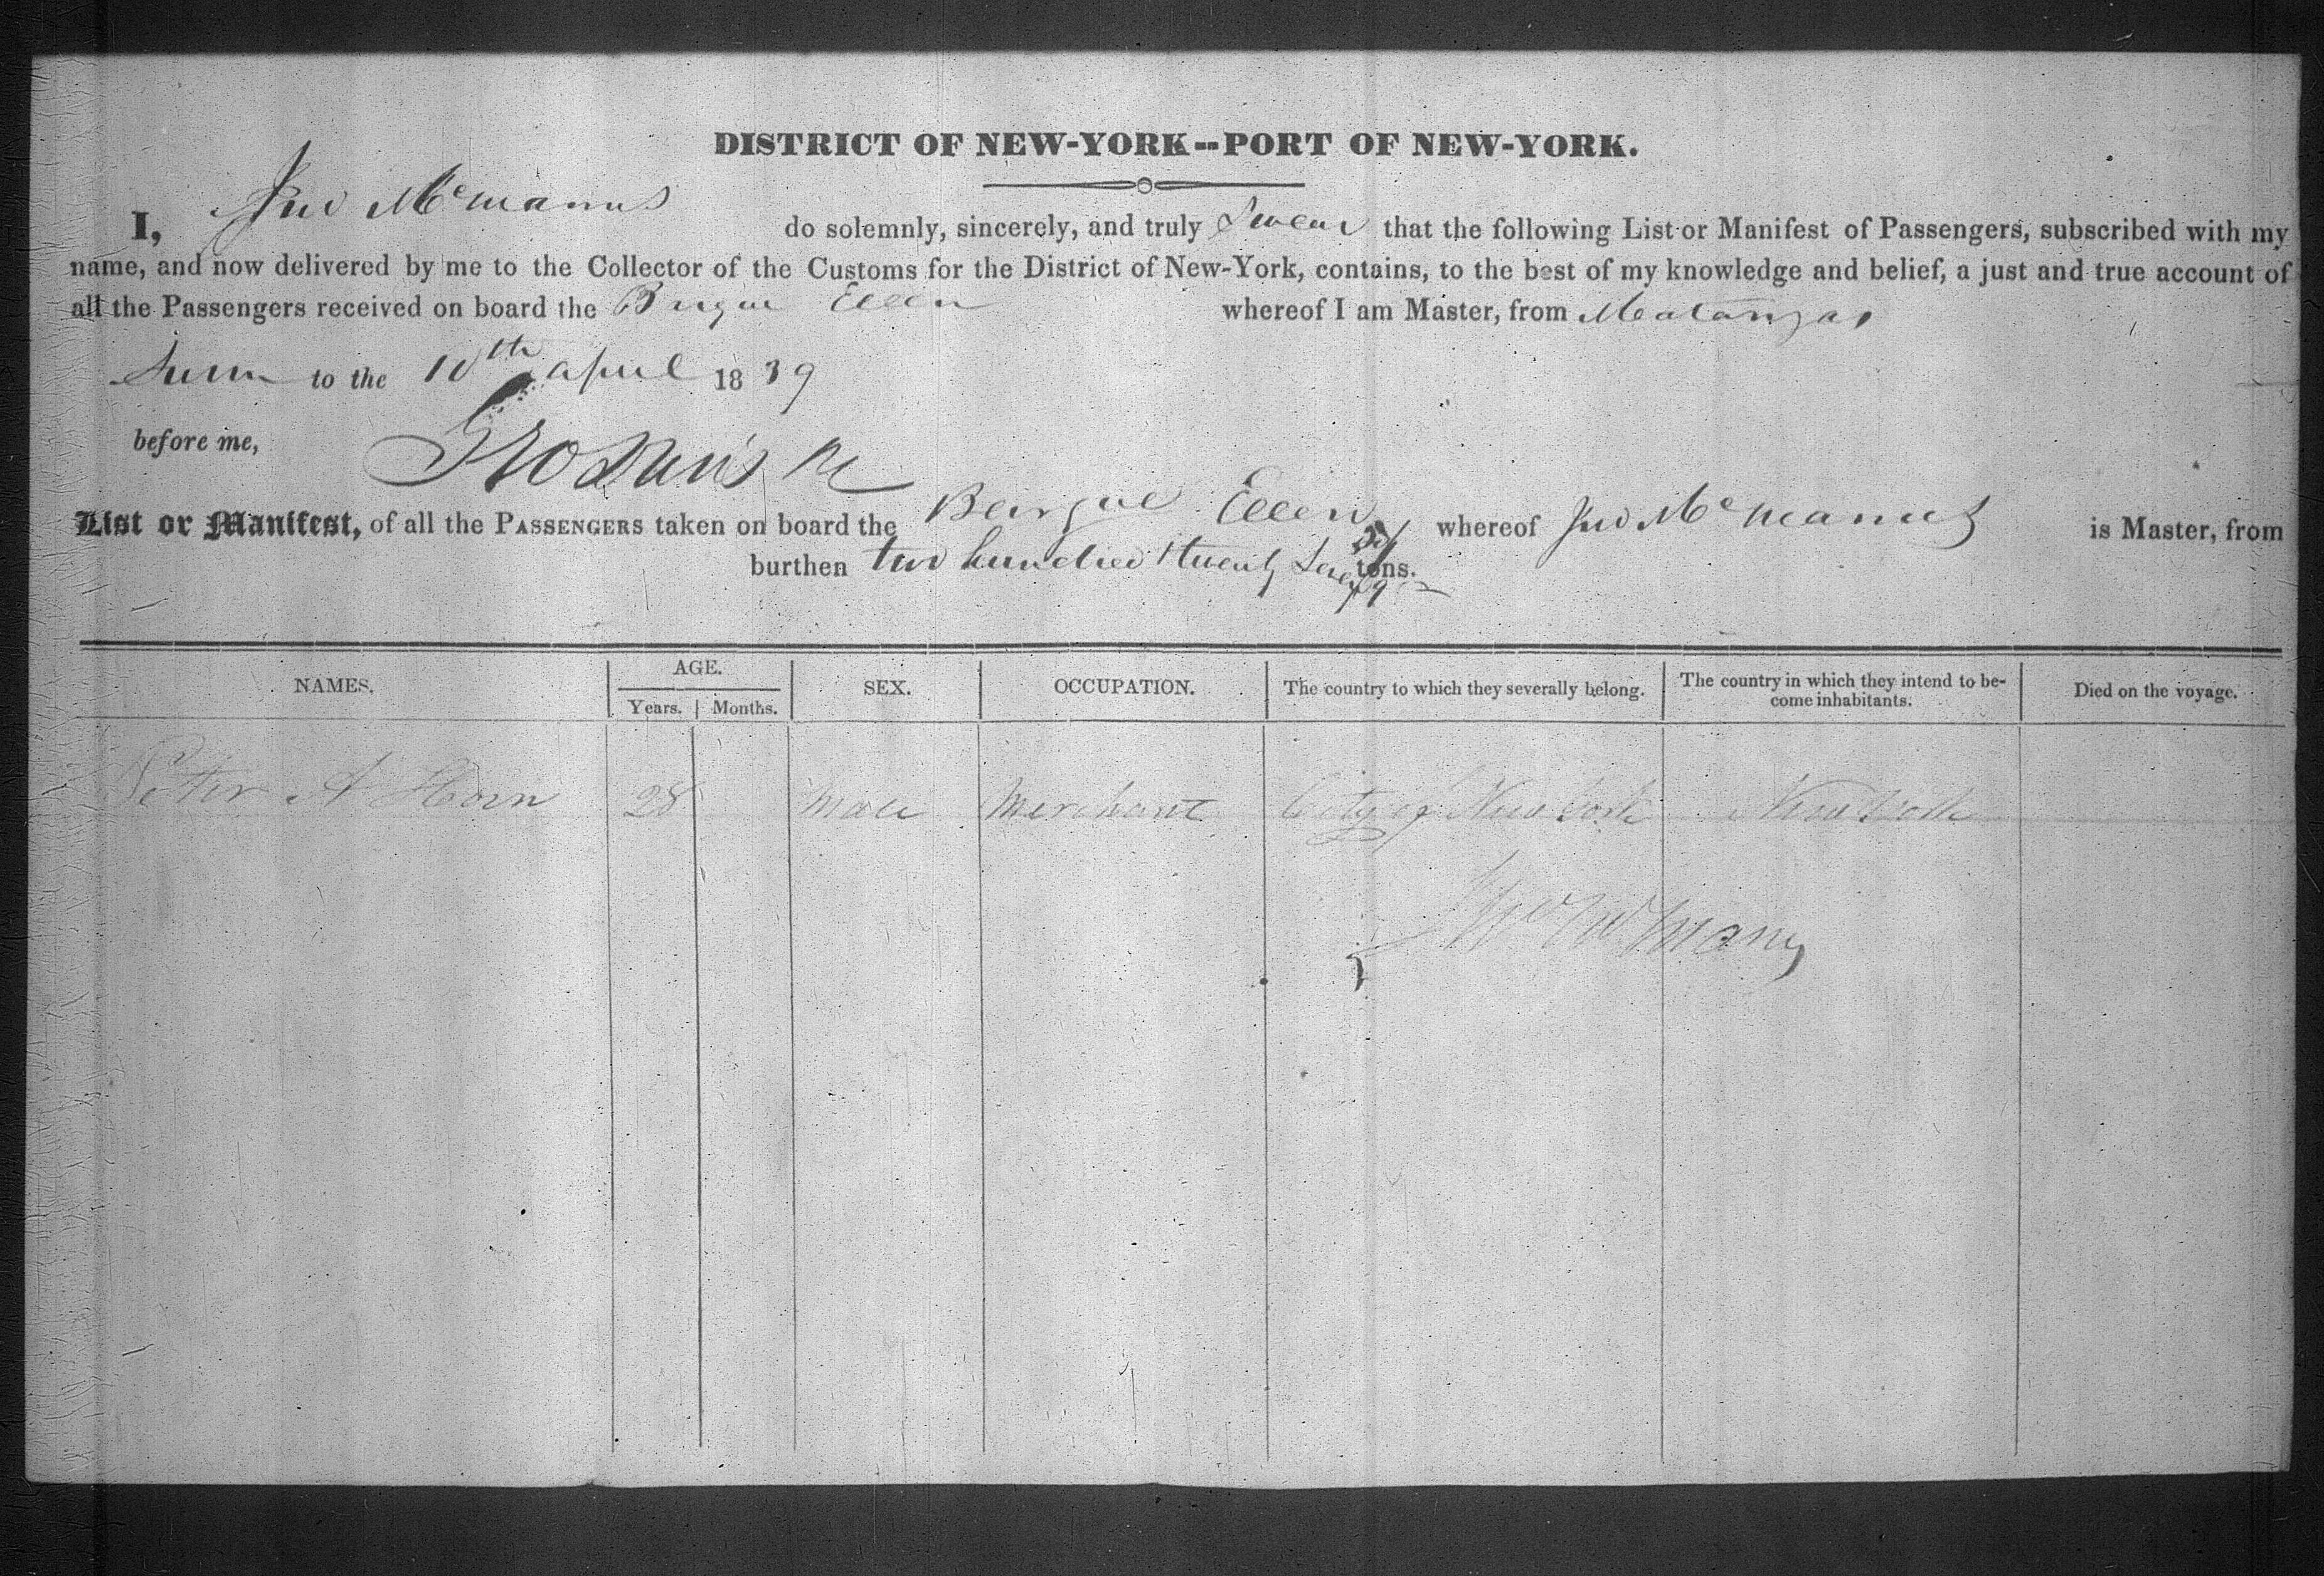 DISTRICT OF NEW-YORK--PORT OF NEW-YORK.
I, Jno McManus do solemnly, sincerely, and truly Swear that the following List or Manifest of Passengers, subscribed with my
name, and now delivered by me to the Collector of the Customs for the District of New-York, contains, to the best of my knowledge and belief, a just and true account of
all the Passengers received on board the Barque Ellen whereof I am Master, from Matanzas
Sworn to the 10th april 1839
before me,
List or Manifest, of all the PASSENGERS taken on board the Barque Ellen whereof Jno McManus is Master, from
burthen two hundred & twenty Seven tons.
NAMES. AGE. SEX. OCCUPATION. The country to which they severally belong. The country in which they intend to be-
come inhabitants. Died on the voyage.
Years. Months.
Peter A Horn 28 Male Merchant City of New York New York